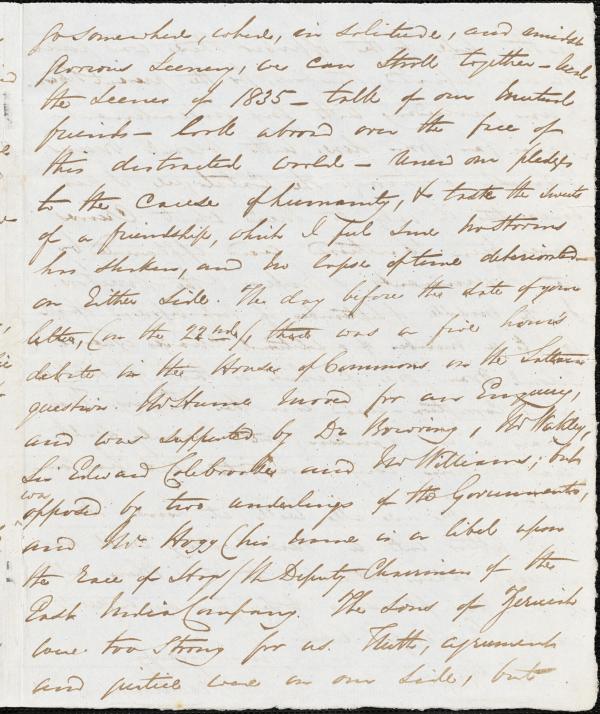 go somewhere, where, in solitude, and amidst
glorious scenery, we can stroll together – recal
the scenes of 1835 – talk of our mutual
friends – look abroad over the face of
this distracted world – renew our pledges
to the cause of humanity, & taste the sweets
of a friendship, which I feel sure no storms
has shaken, and no lapse of time deteriorated
on either side. The day before the date of your
letter, (on the 22nd), there was a five hours
debate in the House of Commons on the Sattara
question. Mr Hume moved for an Enquiry,
and was supported by Dr Bowring, Mr Wakley,
Sir Edward Colebrooke and Mr Williams; but
was
opposed by two underlings of the Government,
and Mr. Hogg (his name is a libel upon
the race of Hogs) the Deputy Chairman of the
East India Company. The sons of Zeruiah
were too strong for us. Truth, argument
and justice were on our side, but